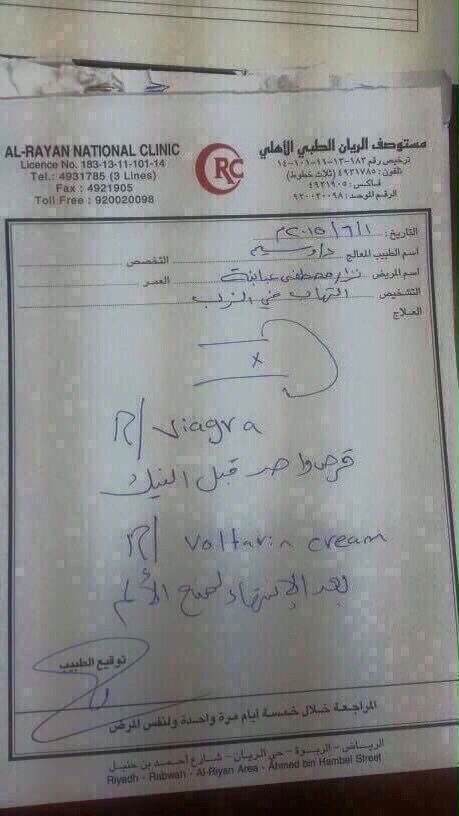 مستوصف الريان الطبي الأهلي
ترخيص رقم ١٨٣-١٣-١١-١٠١-١٤
تلفون: ٤٩٣١٧٨٥ (ثلاث خطوط)
فاكس: ٤٩٢١٩٠٥
الرقم الموحد: ٩٢٠٠٢٠٠٩٨
AL-RAYAN NATIONAL CLINIC
Licence No. 183-13-11-101-14
Tel.: 4931785 (3 Lines)
Fax : 4921905
Toll Free : 920020098
RC
التاريخ: ٢٠١٥/٦/١م
اسم الطبيب المعالج د/ وسيم التخصص
اسم المريض نزار مصطفى العمر
التشخيص التهاب في الزب
العلاج
x
R/ Viagra
قرص واحد قبل النيك
R/ Voltarin cream
بعد الإنتهاء الألم
توقيع الطبيب
المراجعة خلال خمسة أيام مرة واحدة ولنفس المرض
الرياض - الربوة - حي الريان - شارع أحمد بن حنبل
Riyadh - Rabwah - Al-Riyan Area - Ahmed bin Hambel Street